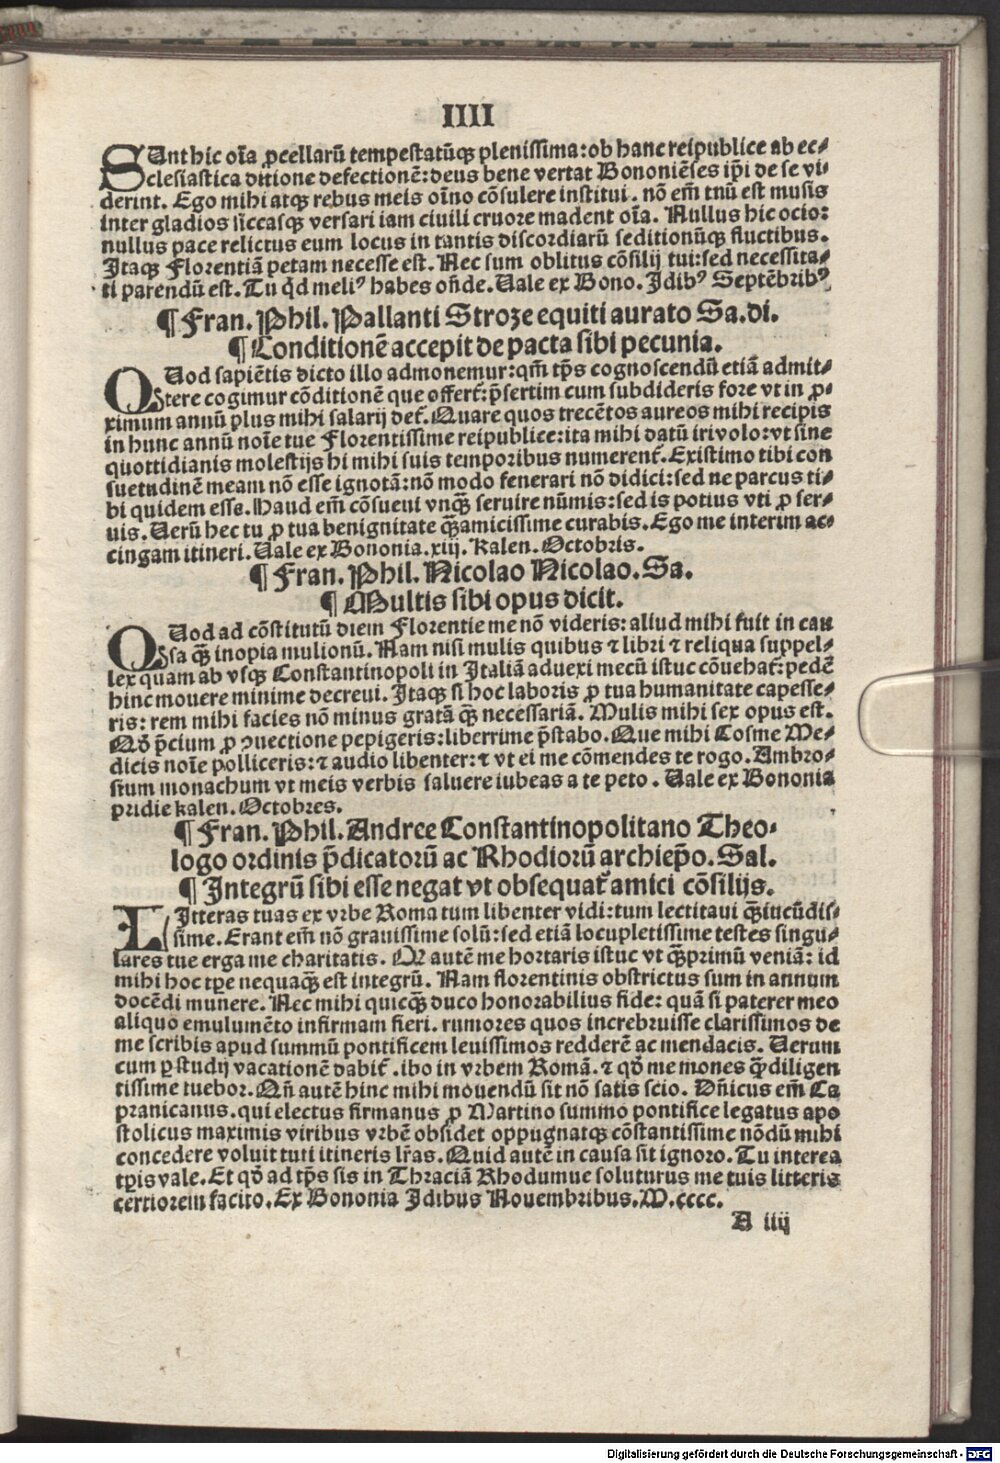 IIII
SUnt hic oĩa ꝓcellarũ tempestatũqꝫ plenissima: ob hanc reipublice ab ec-
clesiastica ditione defectionẽ: deus bene vertat Bononiẽses ip̃i de se vi-
derint. Ego mihi atqꝫ rebus meis oĩno cõsulere institui. nõ em̃ tm̃ est musis
inter gladios siccasqꝫ versari iam ciuili cruore madent oĩa. Nullus hic ocio:
nullus pace relictus eum locus in tantis discordiarũ seditionũqꝫ fluctibus.
Itaqꝫ Florentiã petam necesse est. Nec sum oblitus cõsilij tui: sed necessita-
ti parendũ est. Tu qd̃ meliꝰ habes oñde. Uale ex Bono. Idibꝰ Septẽbribꝰ
¶ Fran. Phil. Pallanti Stroze equiti aurato Sa. di.
¶ Conditionẽ accepit de pacta sibi pecunia.
QUod sapiẽtis dicto illo admonemur: qm̃ tp̃s cognoscendũ etiã admit-
tere cogimur cõditionẽ que offert᷑: p̃sertim cum subdideris fore vt in ꝓ-
ximum annũ plus mihi salarij det᷑. Quare quos trecẽtos aureos mihi recipis
in hunc annũ noĩe tue Florentissime reipublice: ita mihi datũ iri volo: vt sine
quottidianis molestijs hi mihi suis temporibus numerent᷑. Existimo tibi con
suetudinẽ meam nõ esse ignotã: nõ modo fenerari nõ didici: sed ne parcus ti-
bi quidem esse. Haud em̃ cõsueui vnqꝫ̃ seruire nũmis: sed is potius vti ꝓ ser-
uis. Uerũ hec tu ꝓ tua benignitate qꝫ̃amicissime curabis. Ego me interim ac-
cingam itineri. Uale ex Bononia. xiij. Kalen. Octobris.
¶ Fran. Phil. Nicolao Nicolao. Sa.
¶ Multis sibi opus dicit.
QUod ad cõstitutũ diem Florentie me nõ videris: aliud mihi fuit in cau
sa qꝫ̃ inopia mulionũ. Nam nisi mulis quibus ⁊ libri ⁊ reliqua suppel-
lex quam ab vsqꝫ Constantinopoli in Italiã aduexi mecũ istuc cõuehat᷑: pedẽ
hinc mouere minime decreui. Itaqꝫ si hoc laboris ꝓ tua humanitate capesse-
ris: rem mihi facies nõ minus gratã qꝫ̃ necessariã. Mulis mihi sex opus est.
Qd̃ p̃cium ꝓ ꝯuectione pepigeris: liberrime p̃stabo. Que mihi Cosme Me-
dicis noĩe polliceris: ⁊ audio libenter: ⁊ vt ei me cõmendes te rogo. Ambro-
sium monachum vt meis verbis saluere iubeas a te peto. Uale ex Bononia
pridie kalen. Octobres.
¶ Fran. Phil. Andree Constantinopolitano Theo-
logo ordinis p̃dicatorũ ac Rhodiorũ archiep̃o. Sal.
¶ Integrũ sibi esse negat vt obsequat᷑ amici cõsilijs.
LItteras tuas ex vrbe Roma tum libenter vidi: tum lectitaui qꝫ̃iucũdis-
sime. Erant em̃ nõ grauissime solũ: sed etiã locupletissime testes singu-
lares tue erga me charitatis. Qr autẽ me hortaris istuc vt qꝫ̃primũ veniã: id
mihi hoc tp̃e nequaqꝫ̃ est integrũ. Nam florentinis obstrictus sum in annum
docẽdi munere. Nec mihi quicqꝫ̃ duco honorabilius fide: quã si paterer meo
aliquo emulumẽto infirmam fieri. rumores quos increbruisse clarissimos de
me scribis apud summũ pontificem leuissimos redderẽ ac mendacis. Uerum
cum ꝑ studij vacationẽ dabit᷑. ibo in vrbem Romã. ⁊ qd̃ me mones qꝫ̃diligen
tissime tuebor. Qñ autẽ hinc mihi mouendũ sit nõ satis scio. Dñicus em̃ Ca
pranicanus. qui electus firmanus ꝓ Martino summo pontifice legatus apo
stolicus maximis viribus vrbẽ obsidet oppugnatqꝫ cõstantissime nõdũ mihi
concedere voluit tuti itineris lr̃as. Quid autẽ in causa sit ignoro. Tu interea
tp̃is vale. Et qd̃ ad tp̃s sis in Thraciã Rhodumue soluturus me tuis litteris
certiorem facito. Ex Bononia Idibus Nouembribus. M. cccc.
A iiij
Digitalisierung gefördert durch die Deutsche Forschungsgemeinschaft - DFG